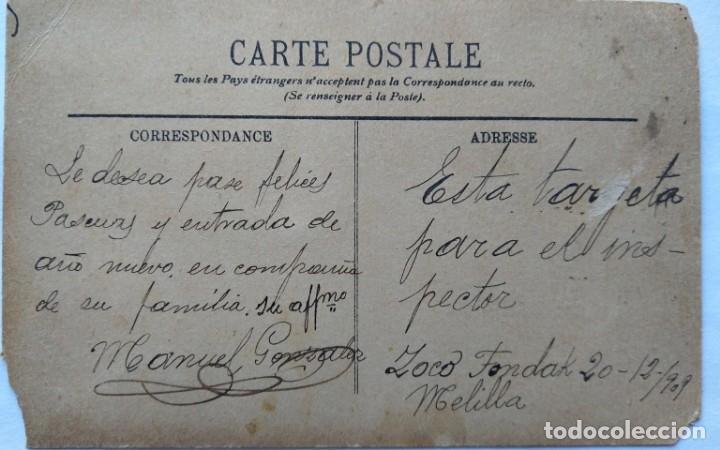 CARTE POSTALE
Tous les Pays étrangers n'acceptent pas la Correspondance au recto.
(Se renseigner à la Poste).
CORRESPONDANCE
Le desea pase felices
Pascuas y entrada de
año nuevo. en compañia
de su familia. su affmo
Manuel Gonzalez
ADRESSE
Esta targeta
para el ins-
pector
Zoco Fondak 20-12-/909
Melilla
todocoleccion.net